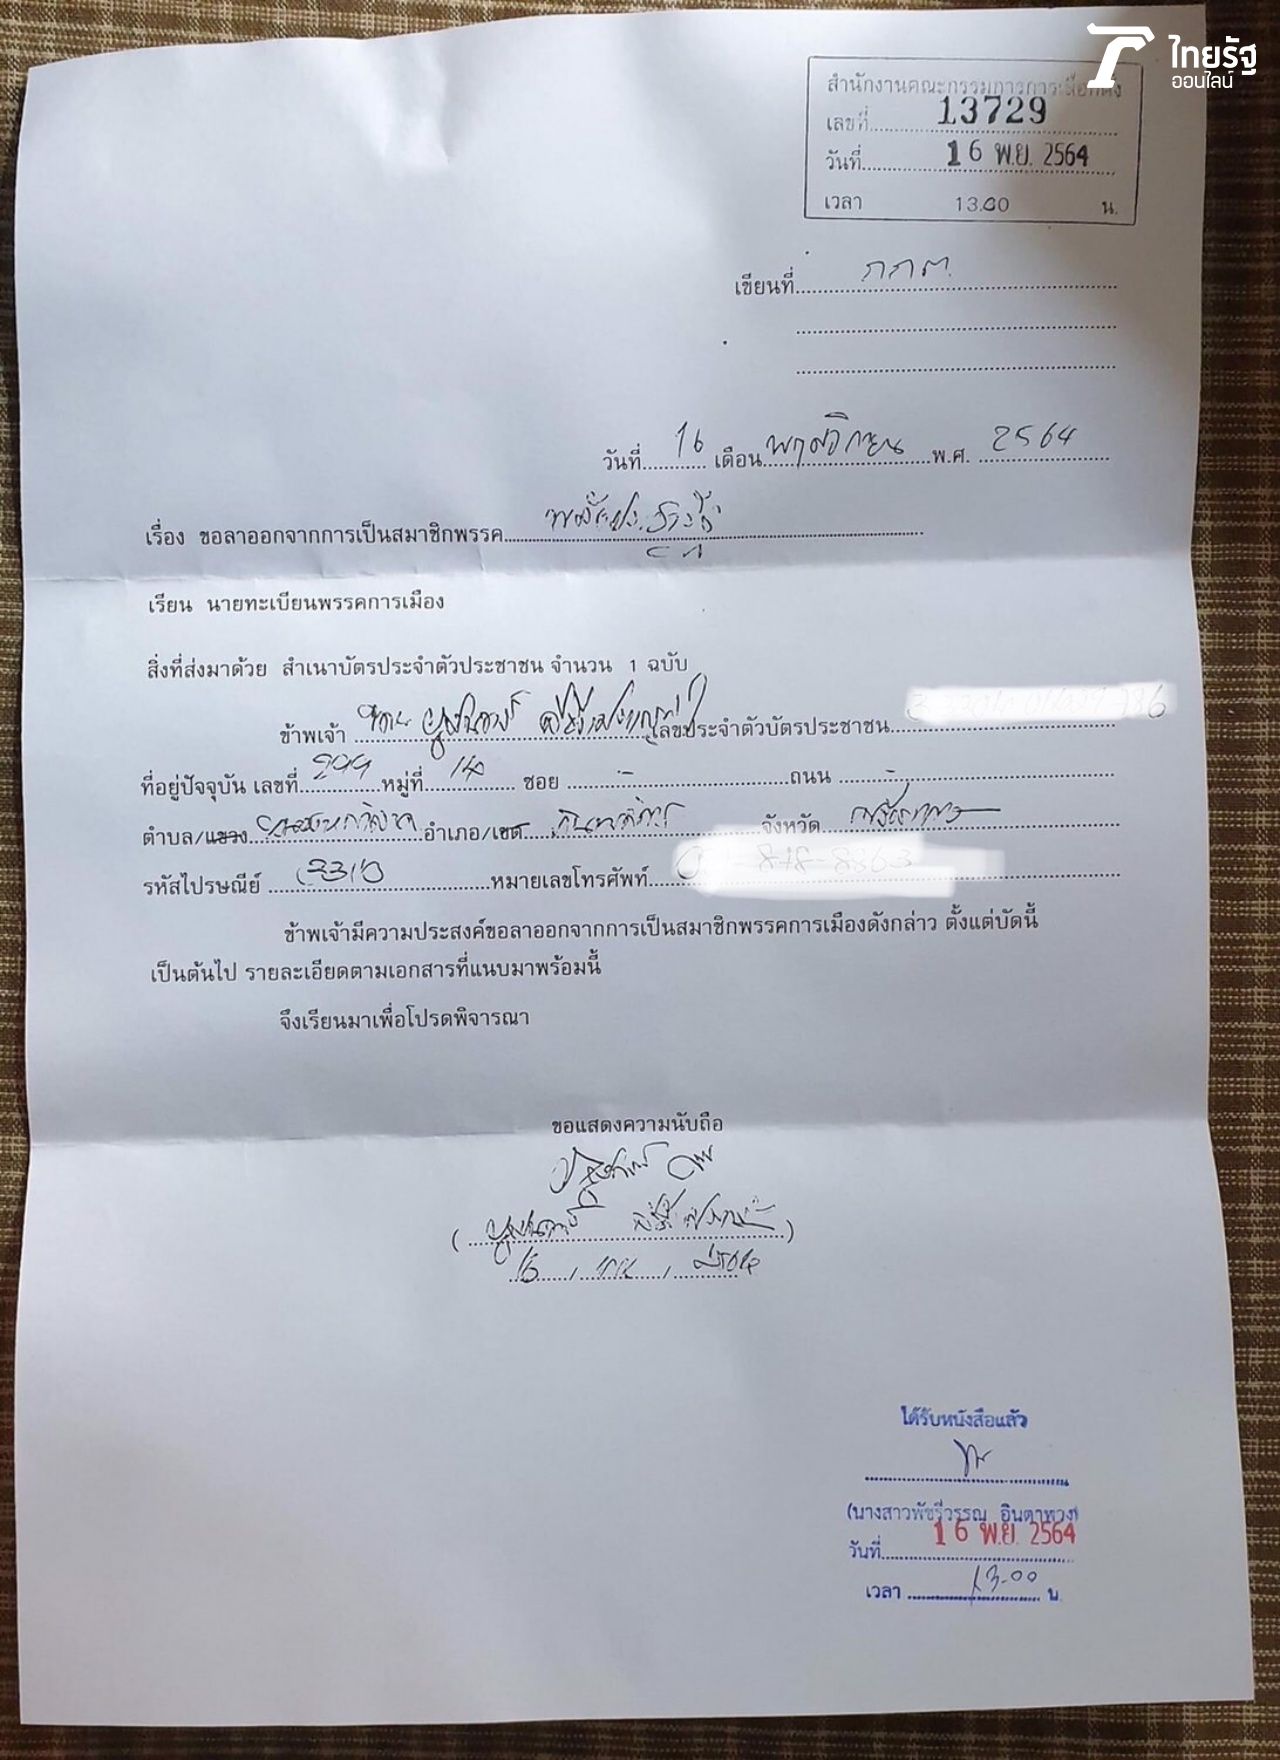 ไทยรัฐ
ออนไลน์
สำนักงานคณะกรรมการการเลือกตั้ง
เลขที่ 13729
วันที่ 16 พ.ย. 2564
เวลา 13.00 น.
เขียนที่ กกต.
วันที่ 16 เดือน พฤศจิกายน พ.ศ. 2564
เรื่อง ขอลาออกจากการเป็นสมาชิกพรรค
เรียน นายทะเบียนพรรคการเมือง
สิ่งที่ส่งมาด้วย สำเนาบัตรประจำตัวประชาชน จำนวน 1 ฉบับ
ข้าพเจ้า เลขประจำตัวบัตรประชาชน
ที่อยู่ปัจจุบัน เลขที่ 299 หมู่ที่ ซอย - ถนน -
ตำบล/แขวง อำเภอ/เขต จังหวัด
รหัสไปรษณีย์ หมายเลขโทรศัพท์
ข้าพเจ้ามีความประสงค์ขอลาออกจากการเป็นสมาชิกพรรคการเมืองดังกล่าว ตั้งแต่บัดนี้
เป็นต้นไป รายละเอียดตามเอกสารที่แนบมาพร้อมนี้
จึงเรียนมาเพื่อโปรดพิจารณา
ขอแสดงความนับถือ
16 / พย / 2564
ได้รับหนังสือแล้ว
(นางสาวพัชรีวรรณ อินตาพวง)
วันที่ 16 พ.ย. 2564
เวลา 13.00 น.